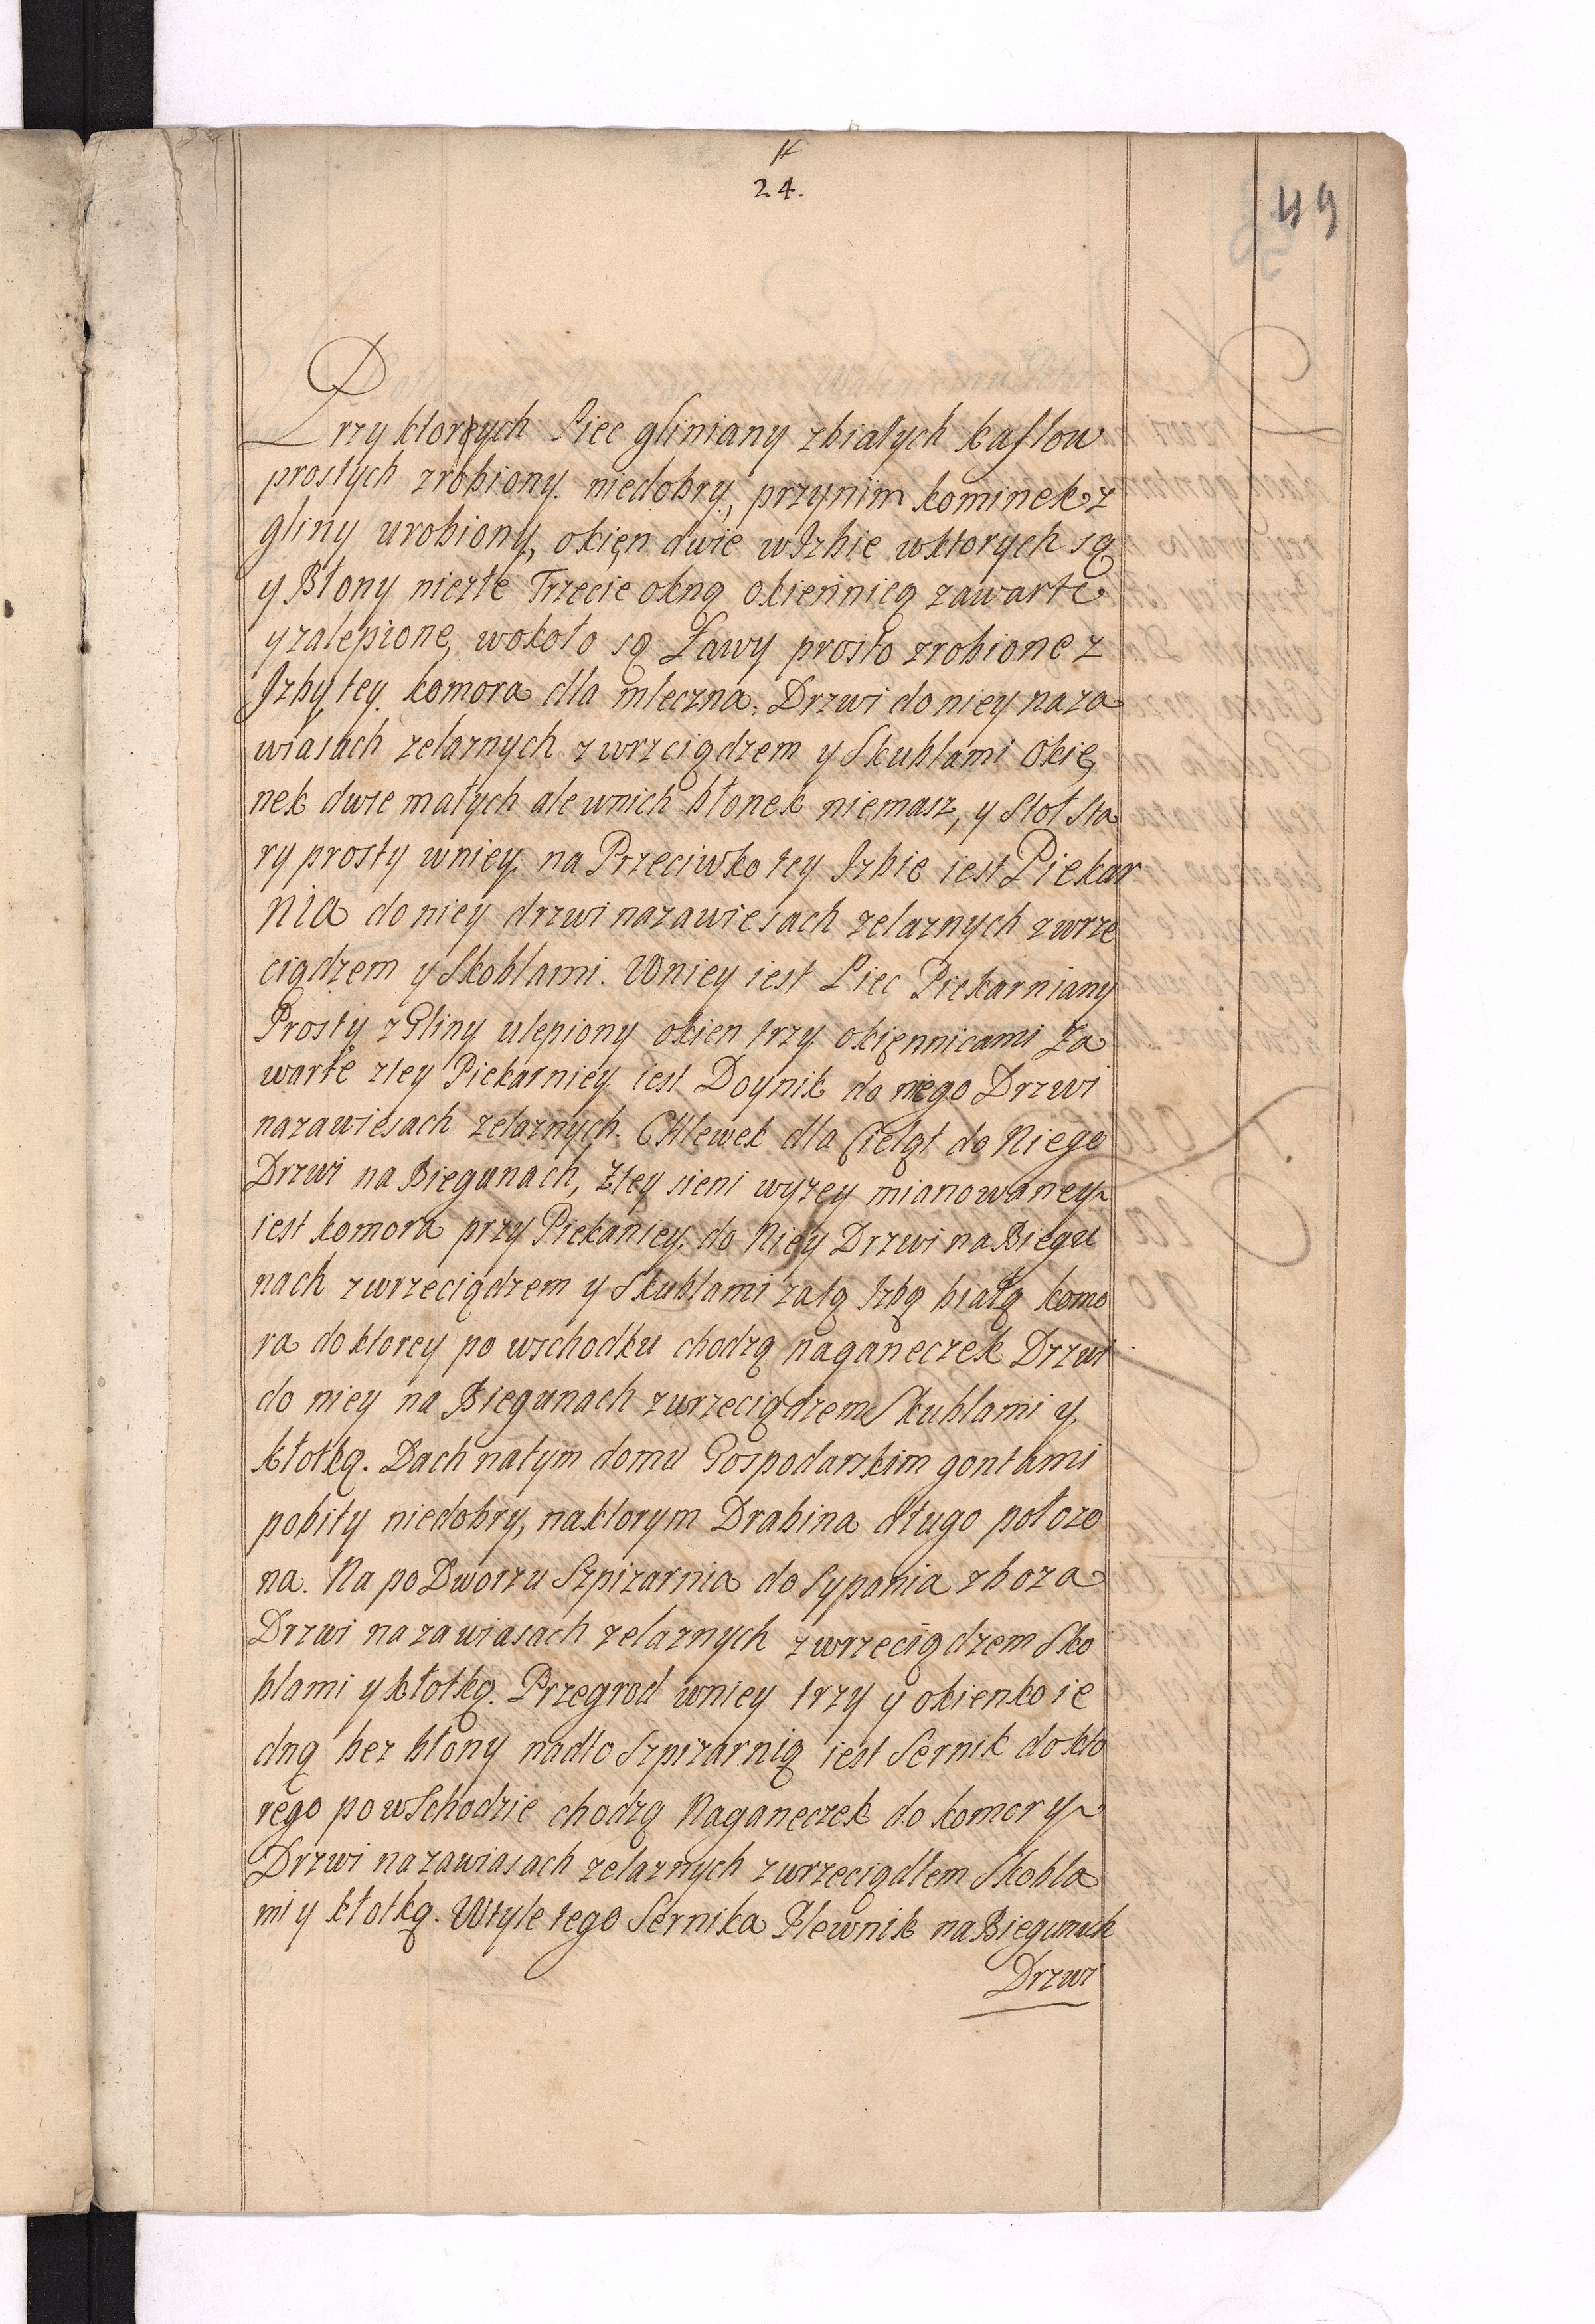 24.
49
Przy ktorych Piec gliniany zbiałych kaflow
prostych zrobiony. niedobry, przynim kominek z
gliny urobiony, okięn dwie wIzbie wktorych są
y Błony niezłe Trzecie okną okiennicą zawarte
yzalepione, wokoło są Ławy prosto zrobione z
Izby tey. komora dla mleczna. Drzwi do niey naza
wiasach zelaznych zwrzciądzem y Skublami Okię
nek dwie małych ale wnich błonek niemasz, y Stoł sta
ry prosty wniey. na Przeciwko tey Izbie iest Piekar
nia do niey drzwi nazawiesach zelaznych zwrze
ciądzem y Skoblami. Wniey iest Piec Piekarniany
Prosty z Gliny ulepiony okien trzy okięnnicami Za
warte ztey Piekarniey iest Doynik do niego Drzwi
nazawiesach zelaznych. Chlewek dla Cieląt do Niego
Drzwi na Biegunach, Ztey sieni wyzey mianowaney
iest komora przy Piekaniey. do Niey Drzwi na Biegu
nach zwrzeciądzem y Skublami zatą Izbą białą komo
ra do ktorey po wschodku chodzą naganeczek Drzwi
do niey na Biegunach zwrzeciądzem Skublami y
kłotką. Dach natym domu Gospodarskim gontami
pobity niedobry, naktorym Drabina długo połozo
na. Na poDworzu Szpizarnia do Sypania zboza
Drzwi nazawiasach zelaznych zwrzeciądzem Sko
blami y kłotką. Przegrod wniey trzy y okienko ie
dną bez błony nadto Szpizarnią iest Sernik do kto
rego po wSchodzie chodzą Naganeczek do komory
Drzwi nazawiasach zelaznych zwrzeciądlem Skobla
mi y kłotką. Wtyle tego Sernika Plewnik na Biegunach
Drzwi